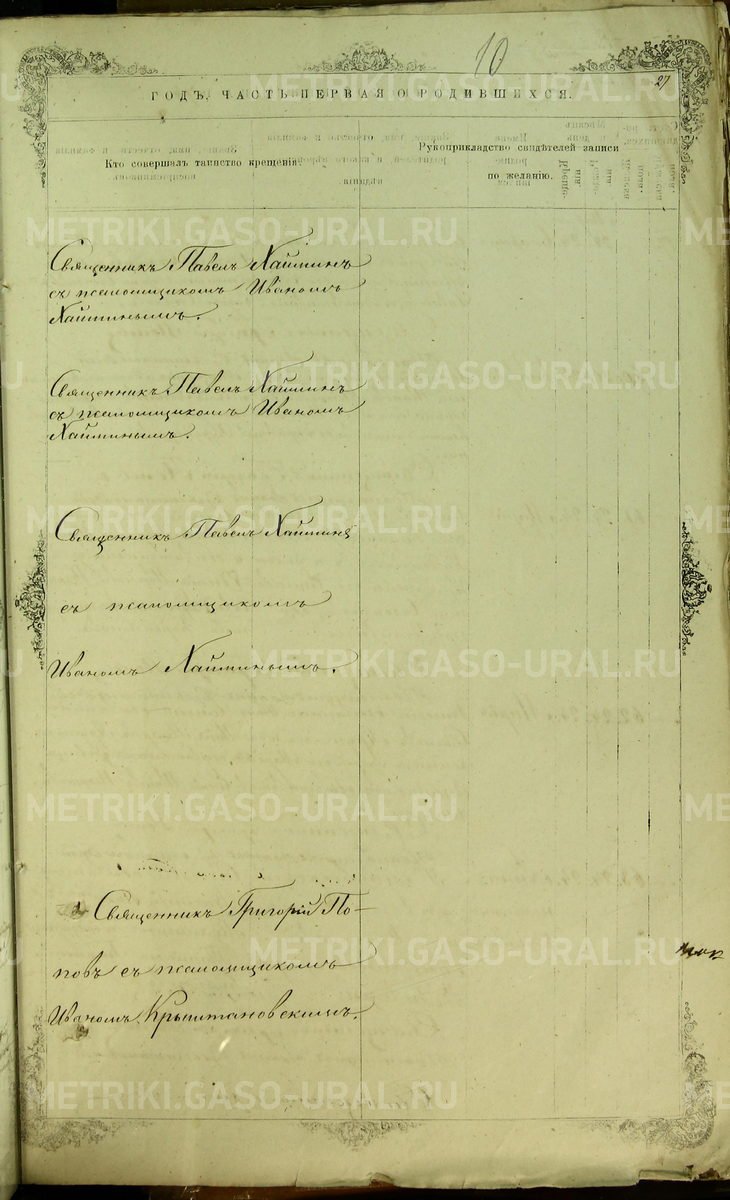 10
27
ГОДЪ, ЧАСТЬ ПЕРВАЯ О РОДИВШИХСЯ.
Кто совершалъ таинство крещенія.
Рукоприкладство свидѣтелей записи
по желанію.
Священникъ Павелъ Хайминъ
съ псаломщикомъ Иваномъ
Хайминымъ.
Священникъ Павелъ Хаймин
съ псаломщикомъ Иваномъ
Хайминымъ.
Священникъ Павелъ Хаймин
съ псаломщикомъ
Иваномъ Хайминымъ.
Священникъ Григорій По-
повъ съ псаломщикомъ
Иваномъ Крыштановскимъ.
METRIKI.GASO-URAL.RU